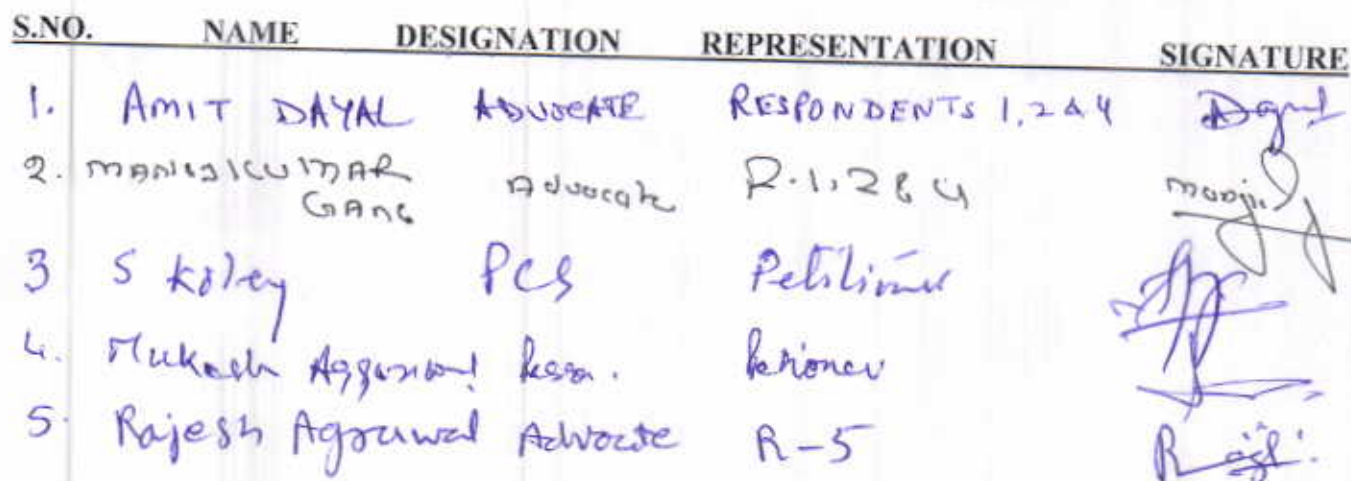 S.NO. NAME DESIGNATION REPRESENTATION SIGNATURE
1. AMIT DAYAL ADVOCATE RESPONDENTS 1,2 & 4 Dayal
2. MANOJ KUMAR Advocate R.1,2 & 4 Manoj
GARG
3 S Koley PCS Petitioner
4. Mukesh Aggarwal
5. Rajesh Agrawal Advocate R-5